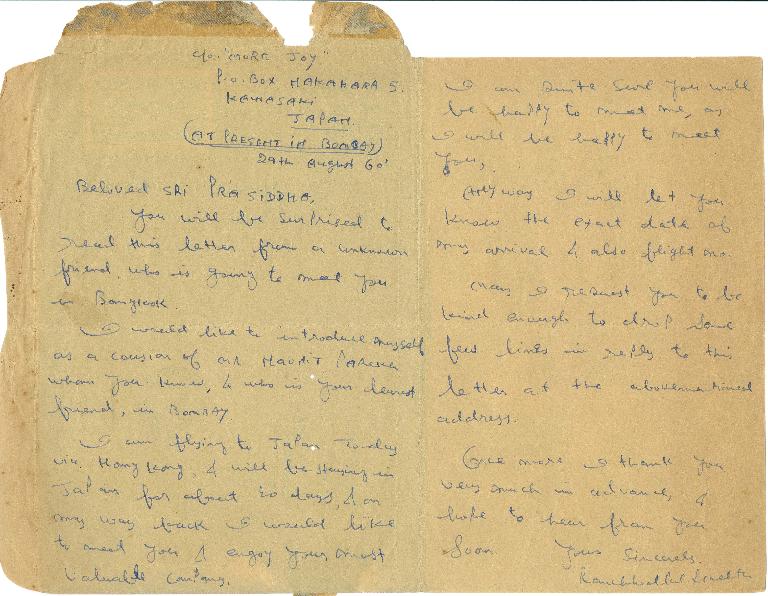 C/o. "MORE JOY"
P.O. BOX NAKAHARA 5.
KAWASAKI
JAPAN.
(AT PRESENT IN BOMBAY)
29th August 60'
Beloved SRI PRASIDDHA,
You will be surprised to
read this letter from a unknown
friend, who is going to meet you
in Bangkok.
I would like to introduce myself
as a cousion of
whom you know, & who is your dearest
friend, in BOMBAY
I am flying to Japan Today
via. Hong Kong, & will be staying in
Japan for about 20 days, & on
my way back I would like
to meet you & engoy your most
valuable company.
I am quite sure you will
be happy to meet me, as
I will be happy to meet
you,
Anyway I will let you
know the exact date of
my arrival & also flight no.
May I request you to be
kind enough to drop some
few lines in reply to this
letter at the abovementioned
address.
Once more I thank you
very much in advance, &
hope to hear from you
soon
Yours Sincerely.